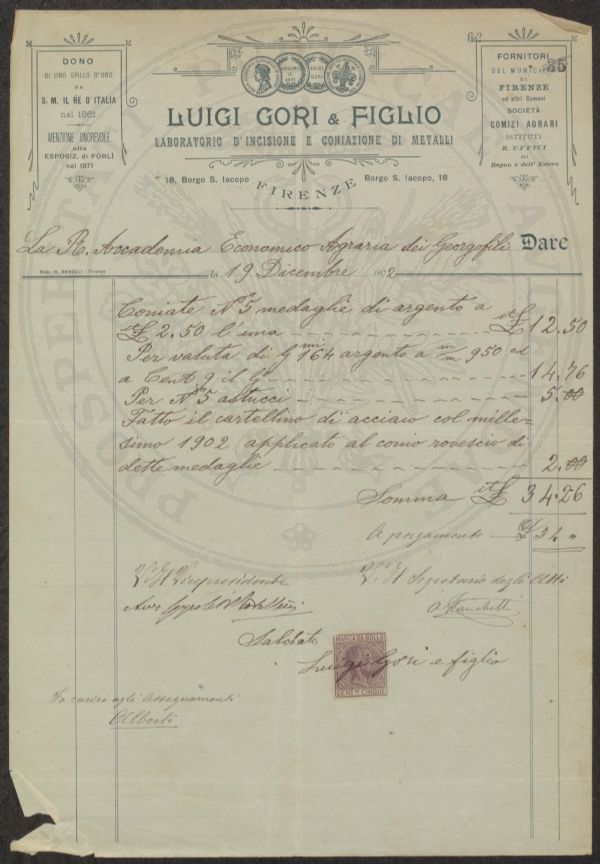 DONO
DI UNO SPILLO D'ORO
DA
S. M. IL RE D'ITALIA
nel 1861
MENZIONE ONOREVOLE
alla
ESPOSIZ. di FORLÌ
nel 1871
LUIGI GORI & FIGLIO
LABORATORIO D'INCISIONE E CONIAZIONE DI METALLI
18, Borgo S. Iacopo
FIRENZE
Borgo S. Iacopo, 18
62
FORNITORI
DEL MUNICIPIO
DI
FIRENZE
ed altri Comuni
SOCIETÀ
COMIZI AGRARI
ISTITUTI
R. UFFICI
del
Regno e dell'Estero
35
La R. Accademia Economico Agraria dei Georgofili Dare
li 19 Dicembre 1902
Coniate N° 5 medaglie di argento a
it £ 2.50 l'una it £ 12.50
Per valuta di Gmi 164 argento a m/m 950 ed
a Cent 9 il G 14.76
Per N° 5 astucci 5.00
Fatto il cartellino di acciaio col mille-
simo 1902 applicato al conio rovescio di
dette medaglie 2.00
Somma it £ 34.26
A pagamento £ 34 "
V° Il Vicepresidente
V° Il Segretario degli Atti
Saldato
MARCA DA BOLLO
CENT. CINQUE
Luigi Gori e figlio
Va carico agli Assegnamenti
Alberti